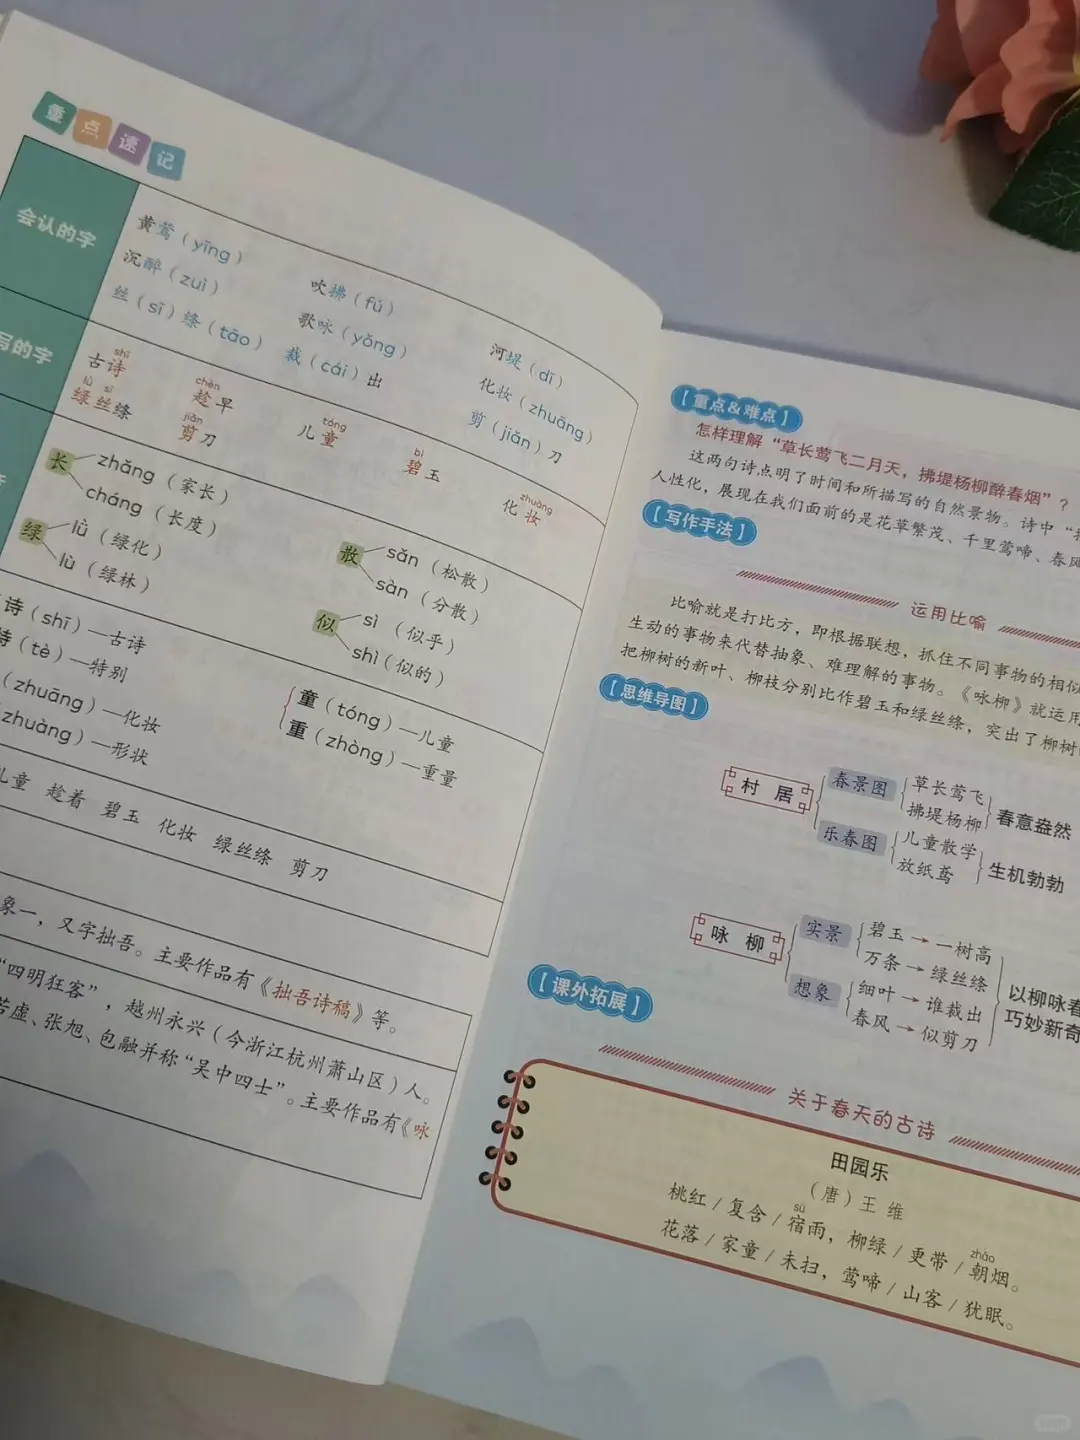 重点速记
会认的字
黄莺（yīng） 吹拂（fú） 河堤（dī）
沉醉（zuì） 歌咏（yǒng） 化妆（zhuāng）
丝（sī）绦（tāo） 裁（cái）出 剪（jiǎn）刀
写的字
shī chèn tóng bì zhuāng
古诗 趁早 儿童 碧玉 化妆
lǜ sī jiǎn
绿丝绦 剪刀
长 zhǎng（家长） 散 sǎn（松散）
cháng（长度） sàn（分散）
绿 lǜ（绿化） 似 sì（似乎）
lù（绿林） shì（似的）
诗（shī）—古诗 童（tóng）—儿童
特（tè）—特别 重（zhòng）—重量
（zhuāng）—化妆
（zhuàng）—形状
儿童 趁着 碧玉 化妆 绿丝绦 剪刀
象一，又字拙吾。主要作品有《拙吾诗稿》等。
“四明狂客”，越州永兴（今浙江杭州萧山区）人。
若虚、张旭、包融并称“吴中四士”。主要作品有《咏
【重点&难点】
怎样理解“草长莺飞二月天，拂堤杨柳醉春烟”？
这两句诗点明了时间和所描写的自然景物。诗中“
人性化，展现在我们面前的是花草繁茂、千里莺啼、春风
【写作手法】
运用比喻
比喻就是打比方，即根据联想，抓住不同事物的相似
生动的事物来代替抽象、难理解的事物。《咏柳》就运用
把柳树的新叶、柳枝分别比作碧玉和绿丝绦，突出了柳树
【思维导图】
村居
春景图 草长莺飞
拂堤杨柳 春意盎然
乐春图 儿童散学
放纸鸢 生机勃勃
咏柳
实景 碧玉→一树高
万条→绿丝绦
想象 细叶→谁裁出
春风→似剪刀
以柳咏春
巧妙新奇
【课外拓展】
关于春天的古诗
田园乐
（唐）王维
sù zhāo
桃红/复含/宿雨，柳绿/更带/朝烟。
花落/家童/未扫，莺啼/山客/犹眠。